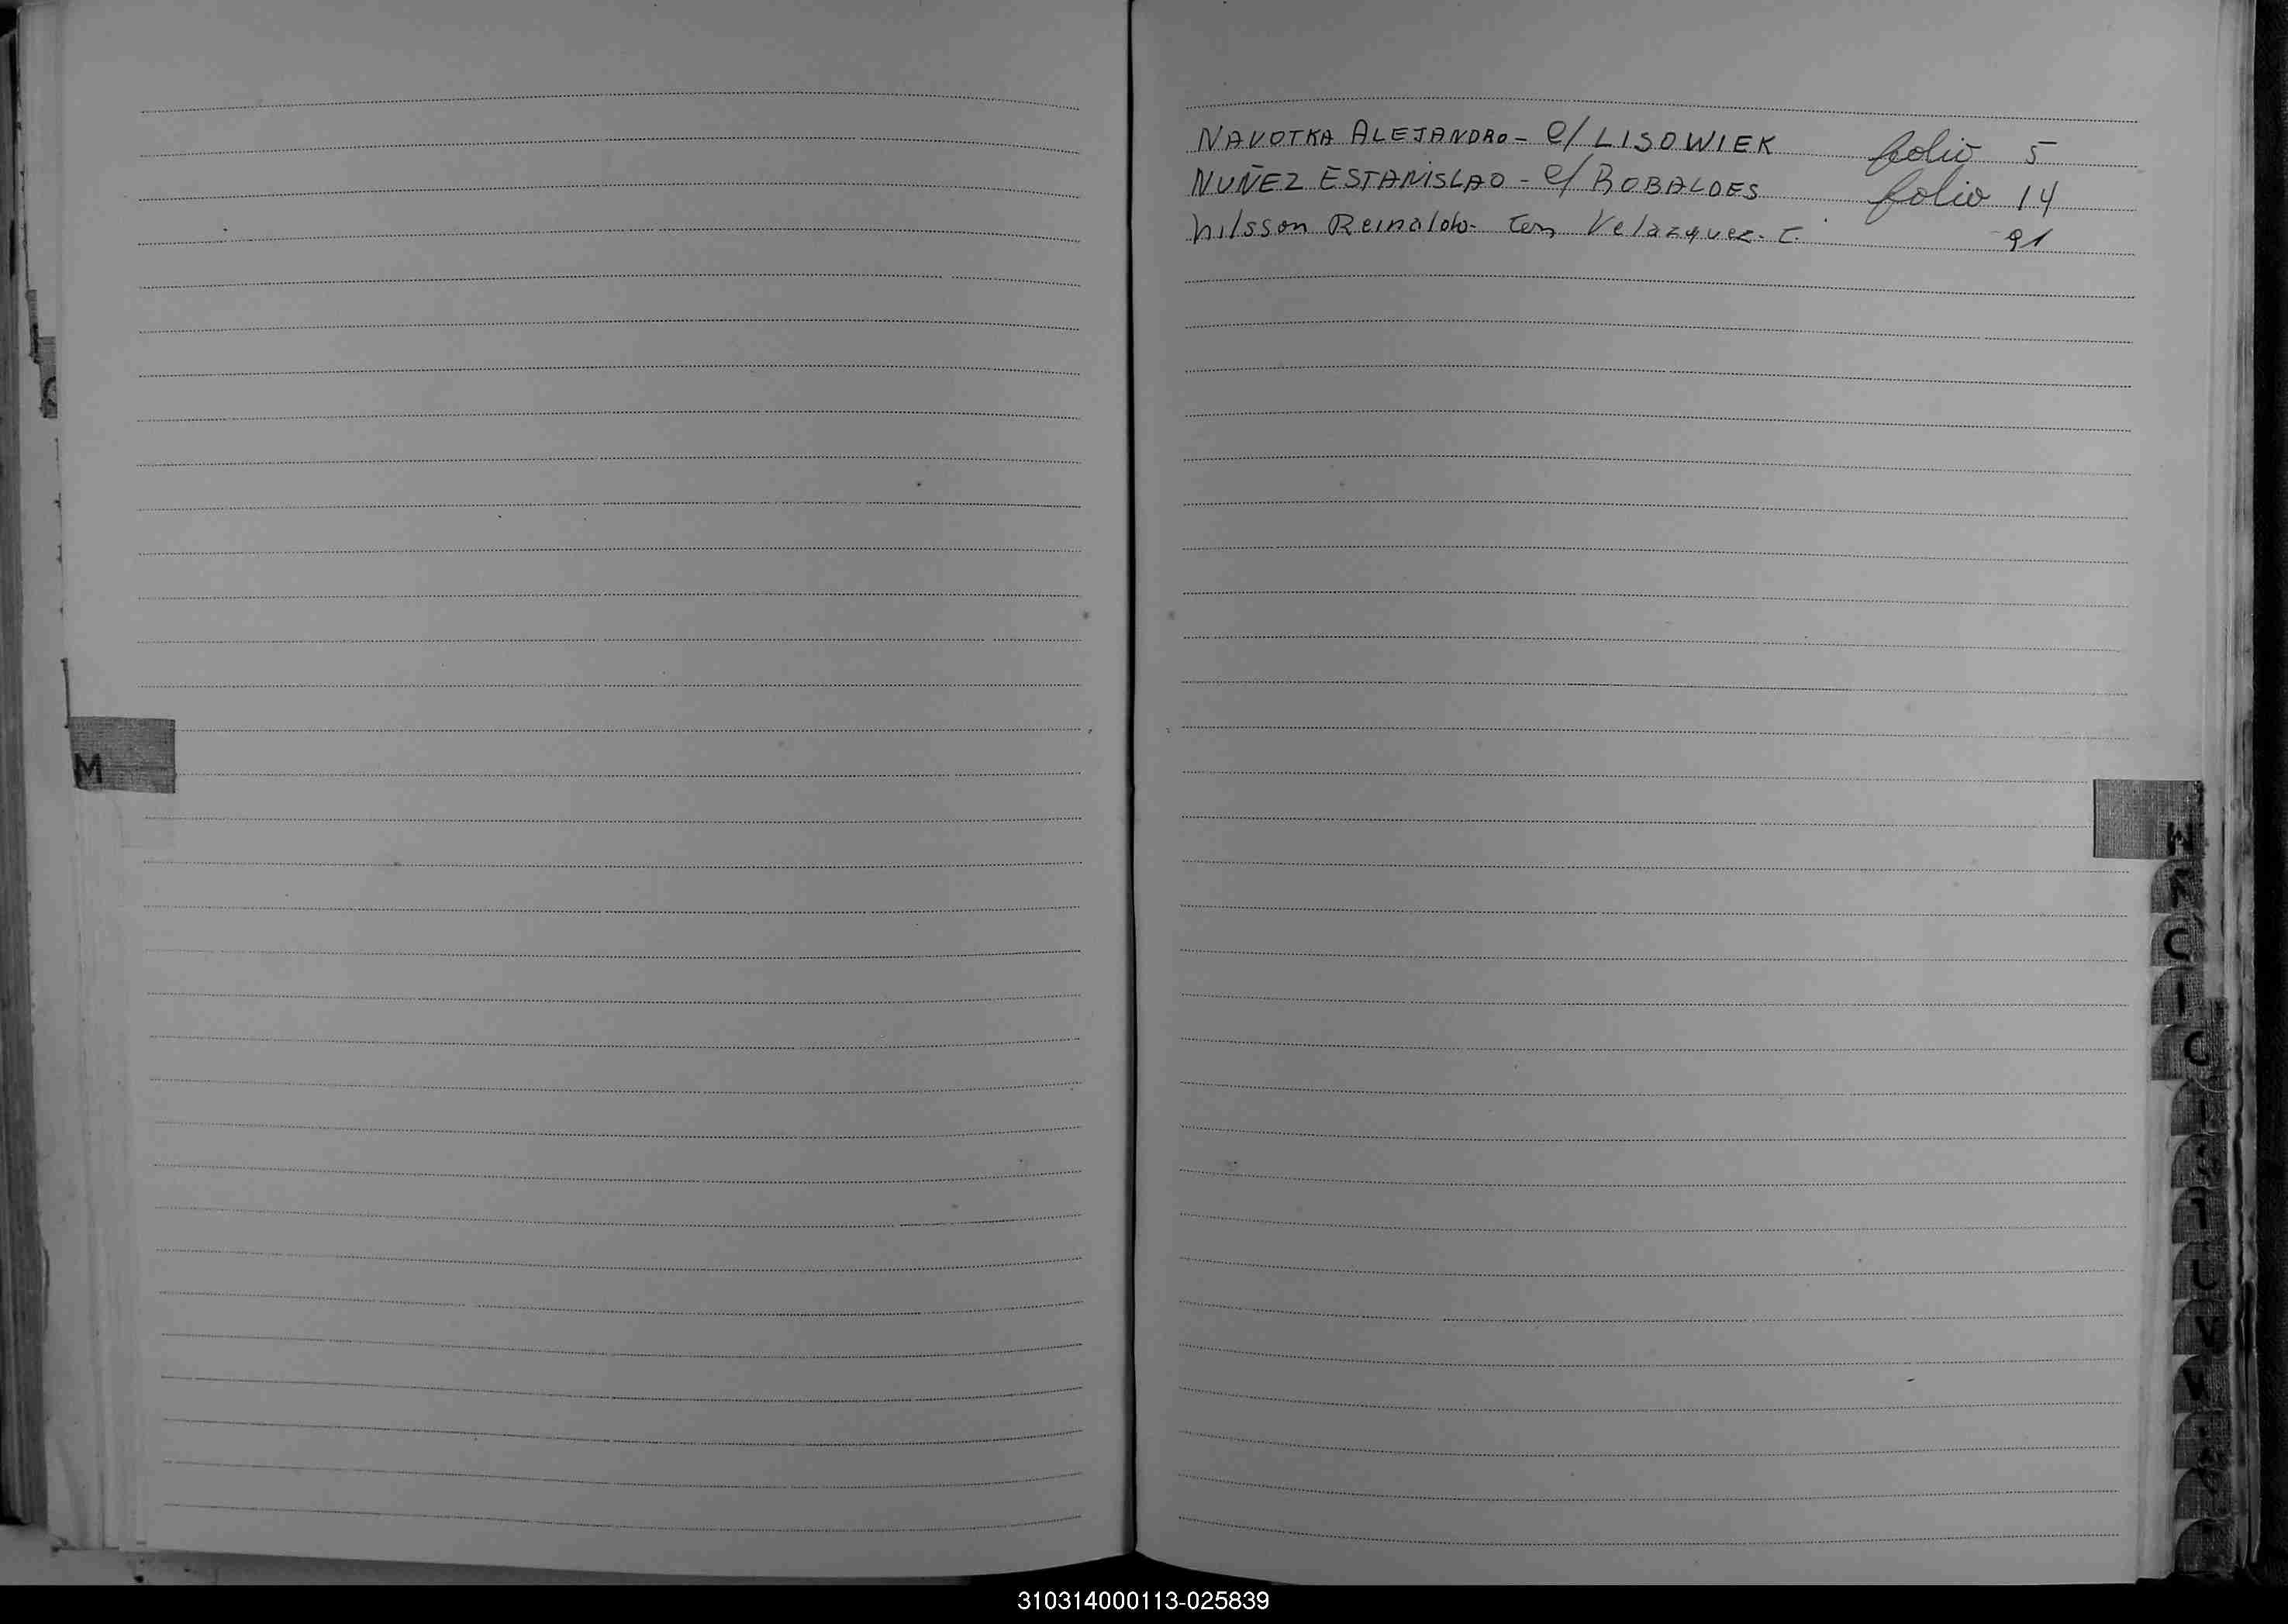 NAVOTKA ALEJANDRO - C/ LISOWIEK folio 5
NUÑEZ ESTANISLAO - C/ ROBALDES folio 14
Nilsson Reinaldo - con Velazquez. C. 91
M
N
C
I
C
310314000113-025839